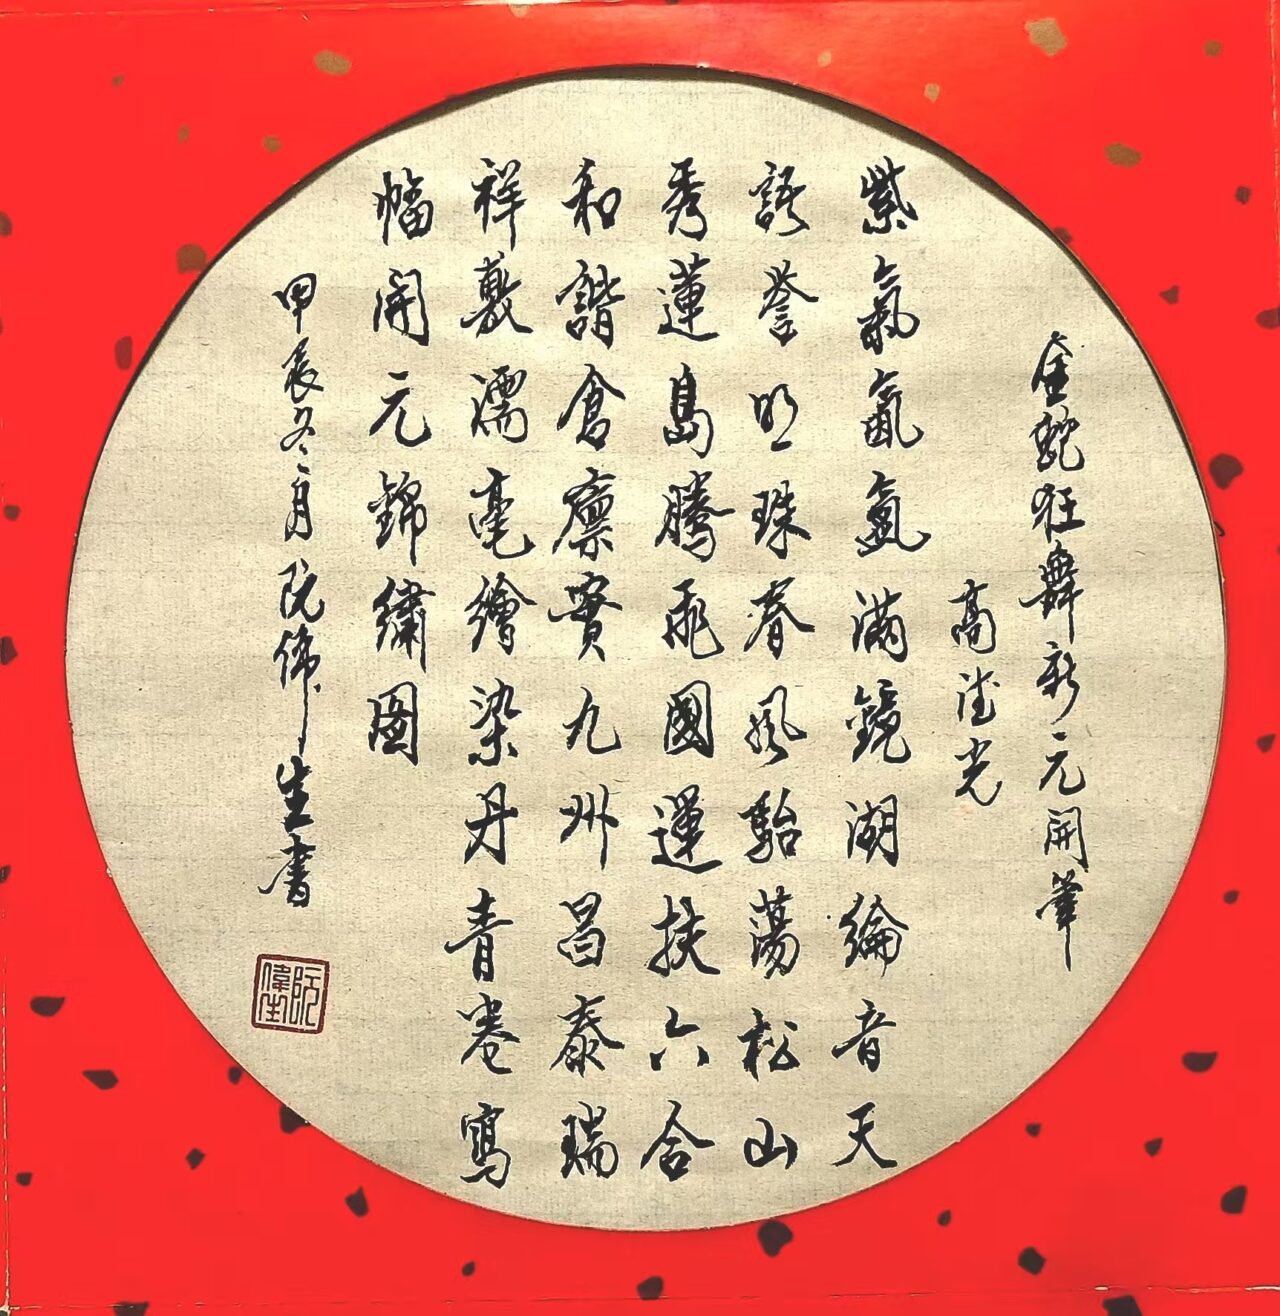 金蛇狂舞新元開筆
高德光
紫氣氤氳滿鏡湖綸音天
語譽明珠春風駘蕩松山
秀蓮島騰飛國運扶六合
和諧倉廪實九州昌泰瑞
祥敷濡毫繪染丹青卷寫
幅開元錦繡圖
甲辰冬月阮偉生書
阮偉生